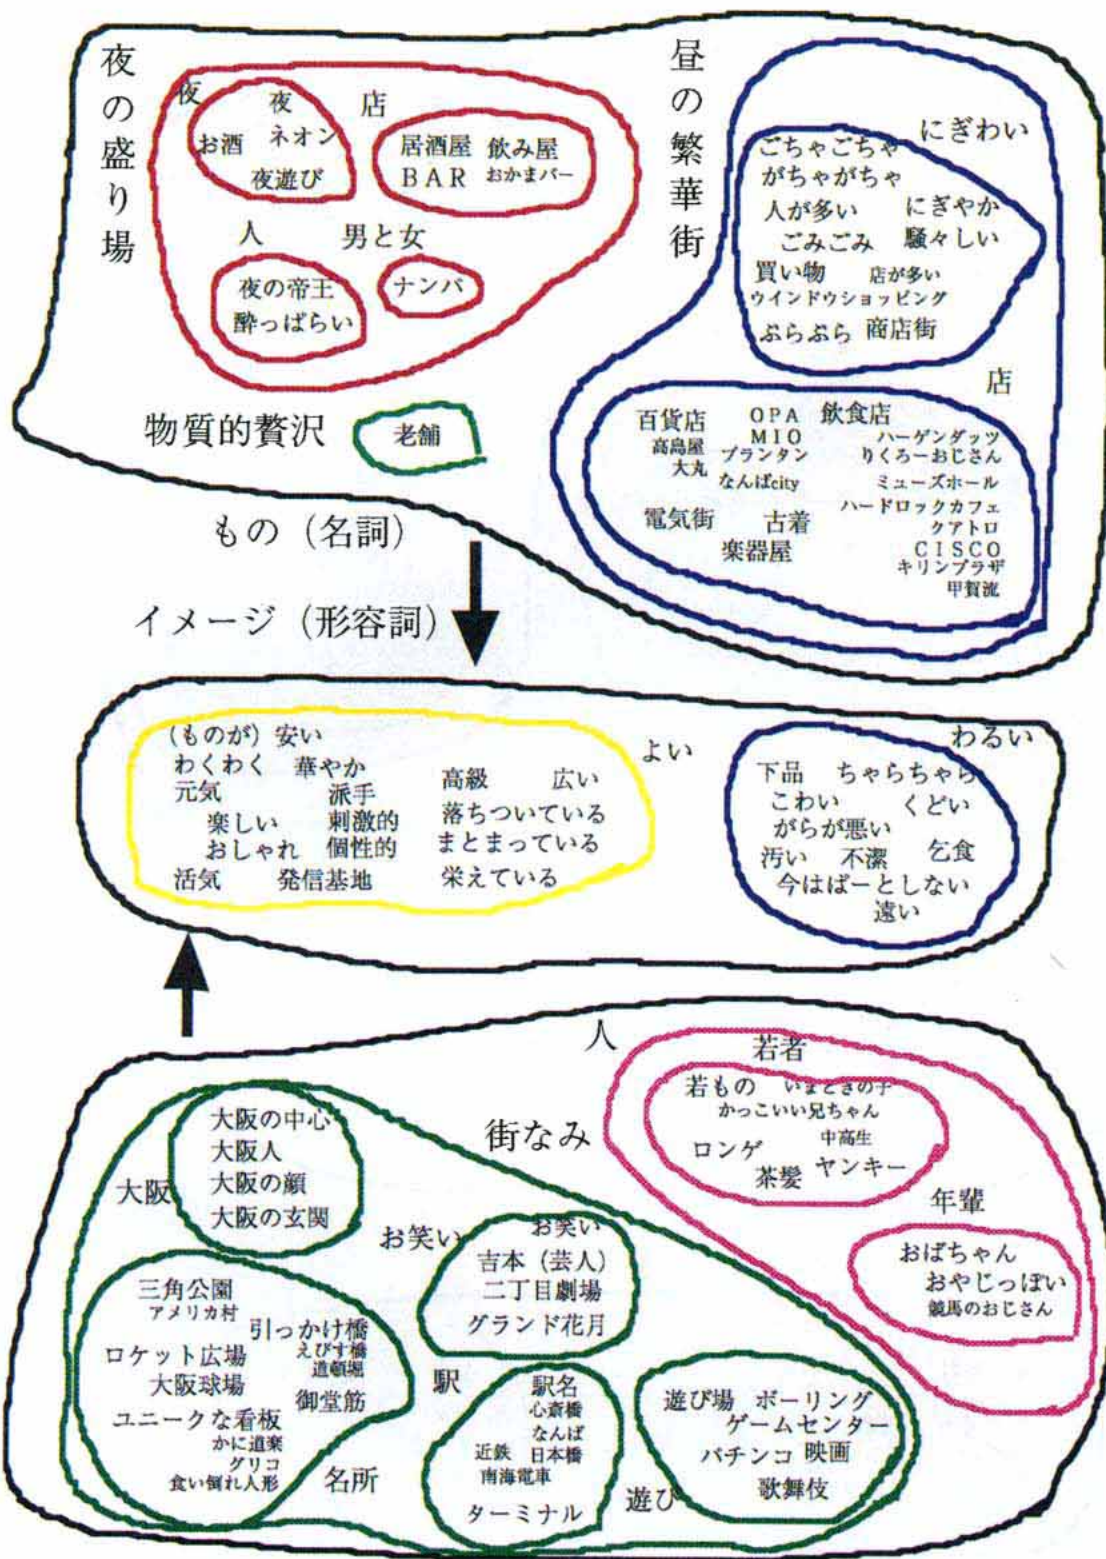 夜の盛り場
夜
夜
お酒 ネオン
夜遊び
店
居酒屋 飲み屋
BAR おかまバー
人
夜の帝王
酔っぱらい
男と女
ナンパ
物質的贅沢
老舗
昼の繁華街
にぎわい
ごちゃごちゃ
がちゃがちゃ
人が多い にぎやか
ごみごみ 騒々しい
買い物 店が多い
ウインドウショッピング
ぶらぶら 商店街
店
百貨店
高島屋
大丸
OPA
MIO
プランタン
なんばcity
飲食店
ハーゲンダッツ
りくろーおじさん
ミューズホール
ハードロックカフェ
クアトロ
CISCO
キリンプラザ
甲賀流
電気街 古着
楽器屋
もの(名詞)
イメージ(形容詞)
よい
(ものが)安い
わくわく 華やか
元気 派手
楽しい 刺激的
おしゃれ 個性的
活気 発信基地
高級 広い
落ちついている
まとまっている
栄えている
わるい
下品 ちゃらちゃら
こわい くどい
がらが悪い
汚い 不潔 乞食
今はぱーとしない
遠い
人
若者
若もの いまどきの子
かっこいい兄ちゃん
ロンゲ 中高生
茶髪 ヤンキー
年輩
おばちゃん
おやじっぽい
競馬のおじさん
街なみ
大阪
大阪の中心
大阪人
大阪の顔
大阪の玄関
お笑い
お笑い
吉本(芸人)
二丁目劇場
グランド花月
三角公園
アメリカ村
引っかけ橋
えびす橋
道頓堀
ロケット広場
大阪球場
御堂筋
ユニークな看板
かに道楽
グリコ
食い倒れ人形
名所
駅
駅名
心斎橋
なんば
近鉄 日本橋
南海電車
ターミナル
遊び
遊び場 ボーリング
ゲームセンター
パチンコ 映画
歌舞伎